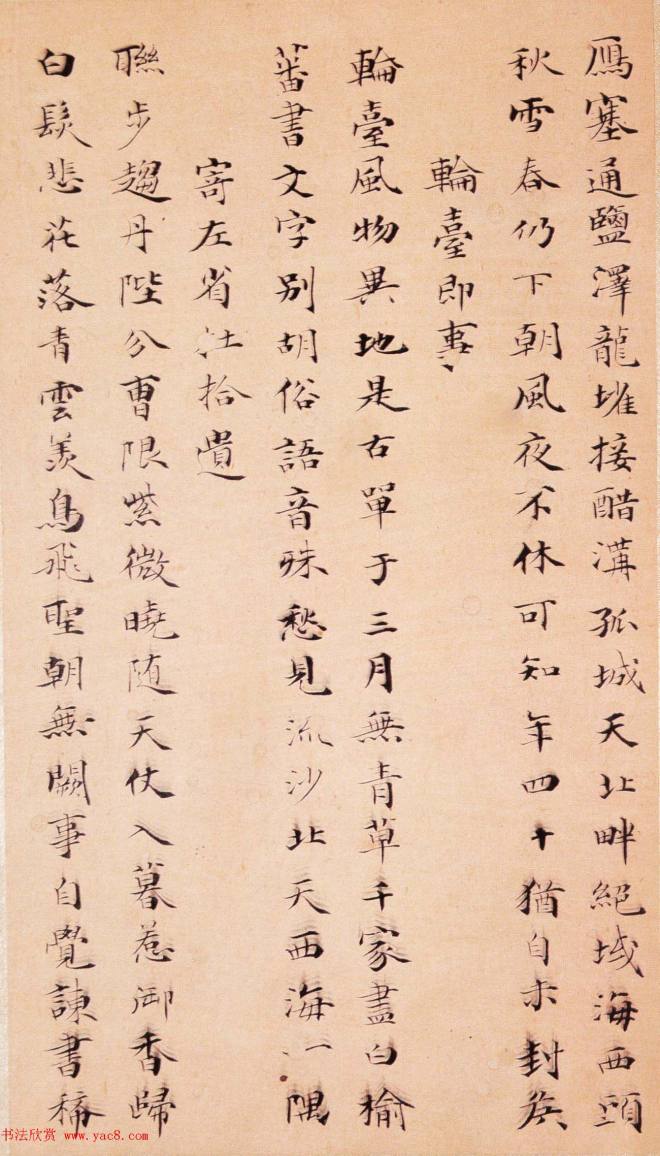 鴈塞通鹽澤龍堆接醋溝孤城天北畔絕域海西頭
秋雪春仍下朝風夜不休可知年四十猶自未封矦
輪臺即事
輪臺風物異地是古單于三月無青草千家盡白榆
蕃書文字別胡俗語音殊愁見流沙北天西海一隅
寄左省杜拾遺
聯步趨丹陛分曹限紫微曉随天仗入暮惹御香歸
白髮悲花落青雲羨鳥飛聖朝無闕事自覺諫書稀
书法欣赏 www.yac8.com